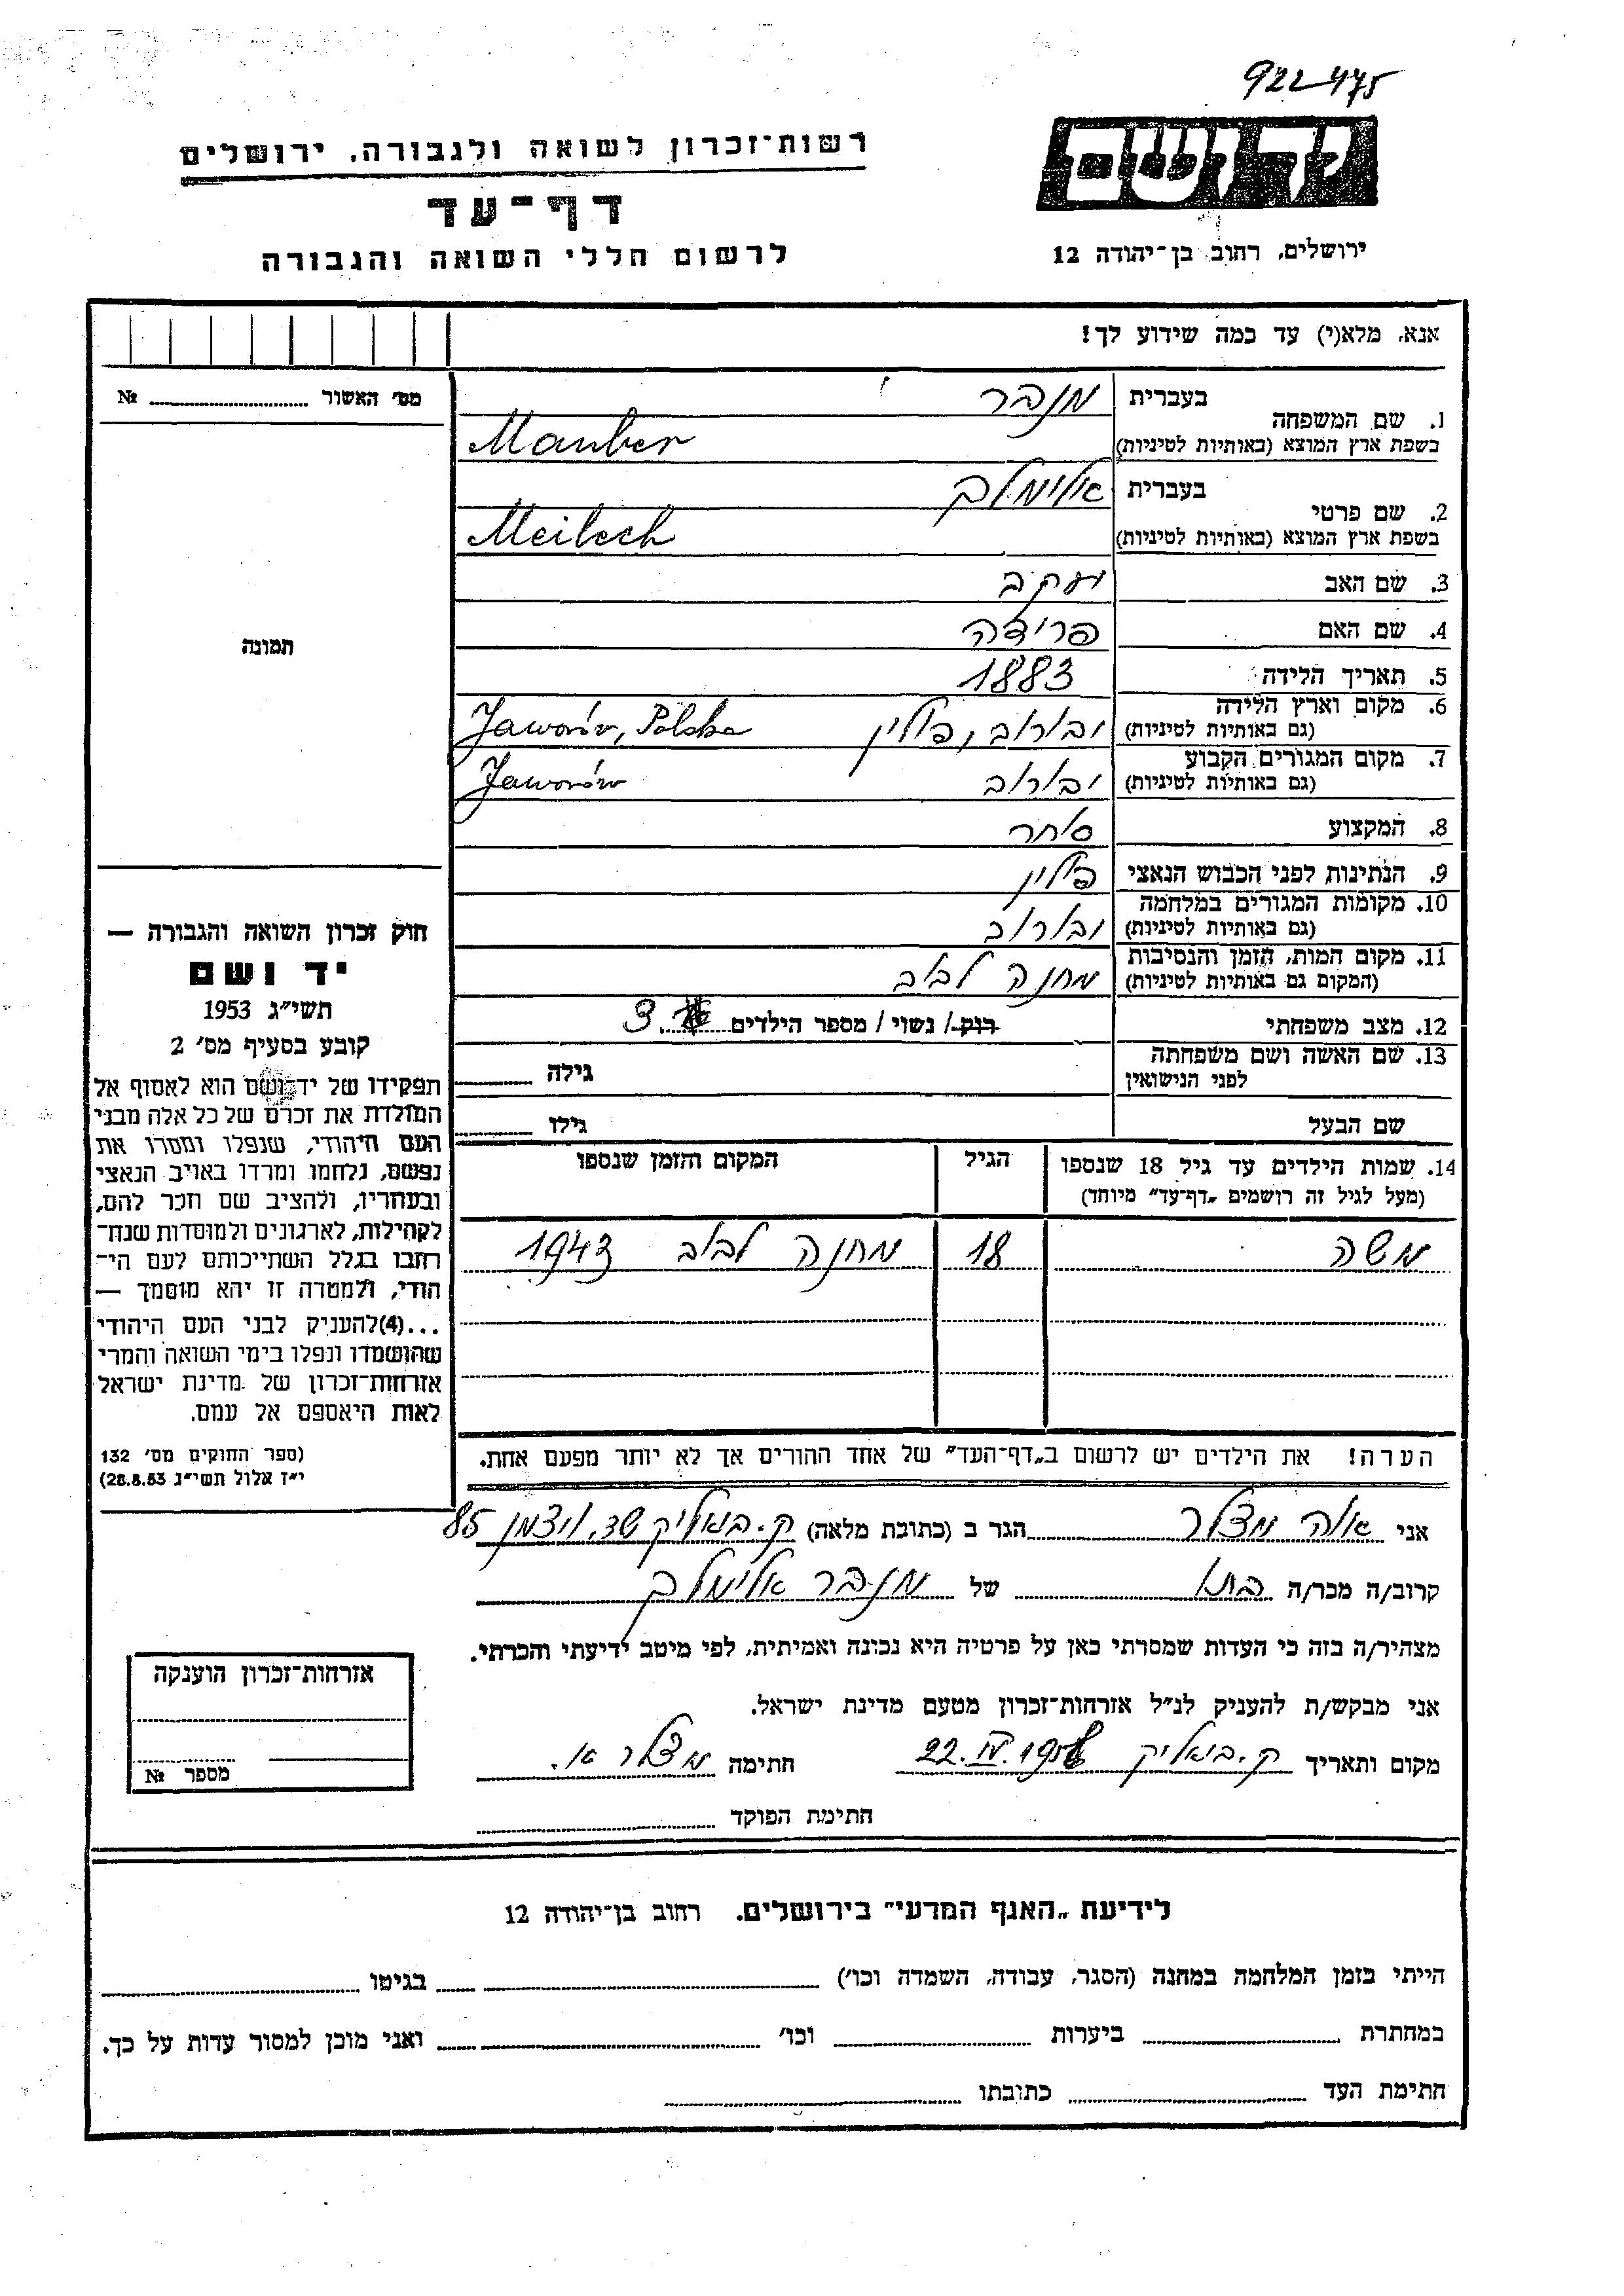 922475
יד ושם
רשות־זכרון לשואה ולגבורה, ירושלים
דף־עד
ירושלים, רחוב בן־יהודה 12
לרשום חללי השואה והגבורה
אנא, מלא(י) עד כמה שידוע לך!
מס' האשור № ........
1. שם המשפחה
בעברית מנבר
בשפת ארץ המוצא (באותיות לטיניות) Manber
2. שם פרטי
בעברית אלימלך
בשפת ארץ המוצא (באותיות לטיניות) Meilech
3. שם האב יעקב
4. שם האם פרידה
5. תאריך הלידה 1883
6. מקום וארץ הלידה
(גם באותיות לטיניות) יבורוב, פולין Jaworów, Polska
7. מקום המגורים הקבוע
(גם באותיות לטיניות) יבורוב Jaworów
8. המקצוע סוחר
9. הנתינות לפני הכבוש הנאצי פולין
10. מקומות המגורים במלחמה
(גם באותיות לטיניות) יבורוב
11. מקום המות, הזמן והנסיבות
(המקום גם באותיות לטיניות) מחנה לבוב
12. מצב משפחתי רוק / נשוי / מספר הילדים 3
13. שם האשה ושם משפחתה
לפני הנישואין גילה
שם הבעל גילו
תמונה
חוק זכרון השואה והגבורה —
יד ושם
תשי״ג 1953
קובע בסעיף מס' 2
תפקידו של יד־ושם הוא לאסוף אל
המולדת את זכרם של כל אלה מבני
העם היהודי, שנפלו ומסרו את
נפשם, נלחמו ומרדו באויב הנאצי
ובעוזריו, ולהציב שם וזכר להם,
לקהילות, לארגונים ולמוסדות שנח־
רבו בגלל השתייכותם לעם הי־
הודי, ולמטרה זו יהא מוסמך —
...(4)להעניק לבני העם היהודי
שהושמדו ונפלו בימי השואה והמרי
אזרחות־זכרון של מדינת ישראל
לאות היאספם אל עמם.
(ספר החוקים מס' 132
י״ז אלול תשי״ג 28.8.53)
14. שמות הילדים עד גיל 18 שנספו
(מעל לגיל זה רושמים „דף־עד״ מיוחד)
הגיל
המקום והזמן שנספו
משה 18 מחנה לבוב 1943
הערה! את הילדים יש לרשום ב„דף־העד״ של אחד ההורים אך לא יותר מפעם אחת.
אני מצלר הגר ב (כתובת מלאה) ק.ביאליק שד. ויצמן 85
קרוב/ה מכר/ה בתו של מנבר אלימלך
מצהיר/ה בזה כי העדות שמסרתי כאן על פרטיה היא נכונה ואמיתית, לפי מיטב ידיעתי והכרתי.
אני מבקש/ת להעניק לנ״ל אזרחות־זכרון מטעם מדינת ישראל.
מקום ותאריך ק.ביאליק 22.IV. חתימה מצלר א.
חתימת הפוקד
אזרחות־זכרון הוענקה
מספר №
לידיעת „האגף המדעי״ בירושלים. רחוב בן־יהודה 12
הייתי בזמן המלחמה במחנה (הסגר, עבודה, השמדה וכו') בגיטו
במחתרת ביערות וכו' ואני מוכן למסור עדות על כך.
חתימת העד כתובתו